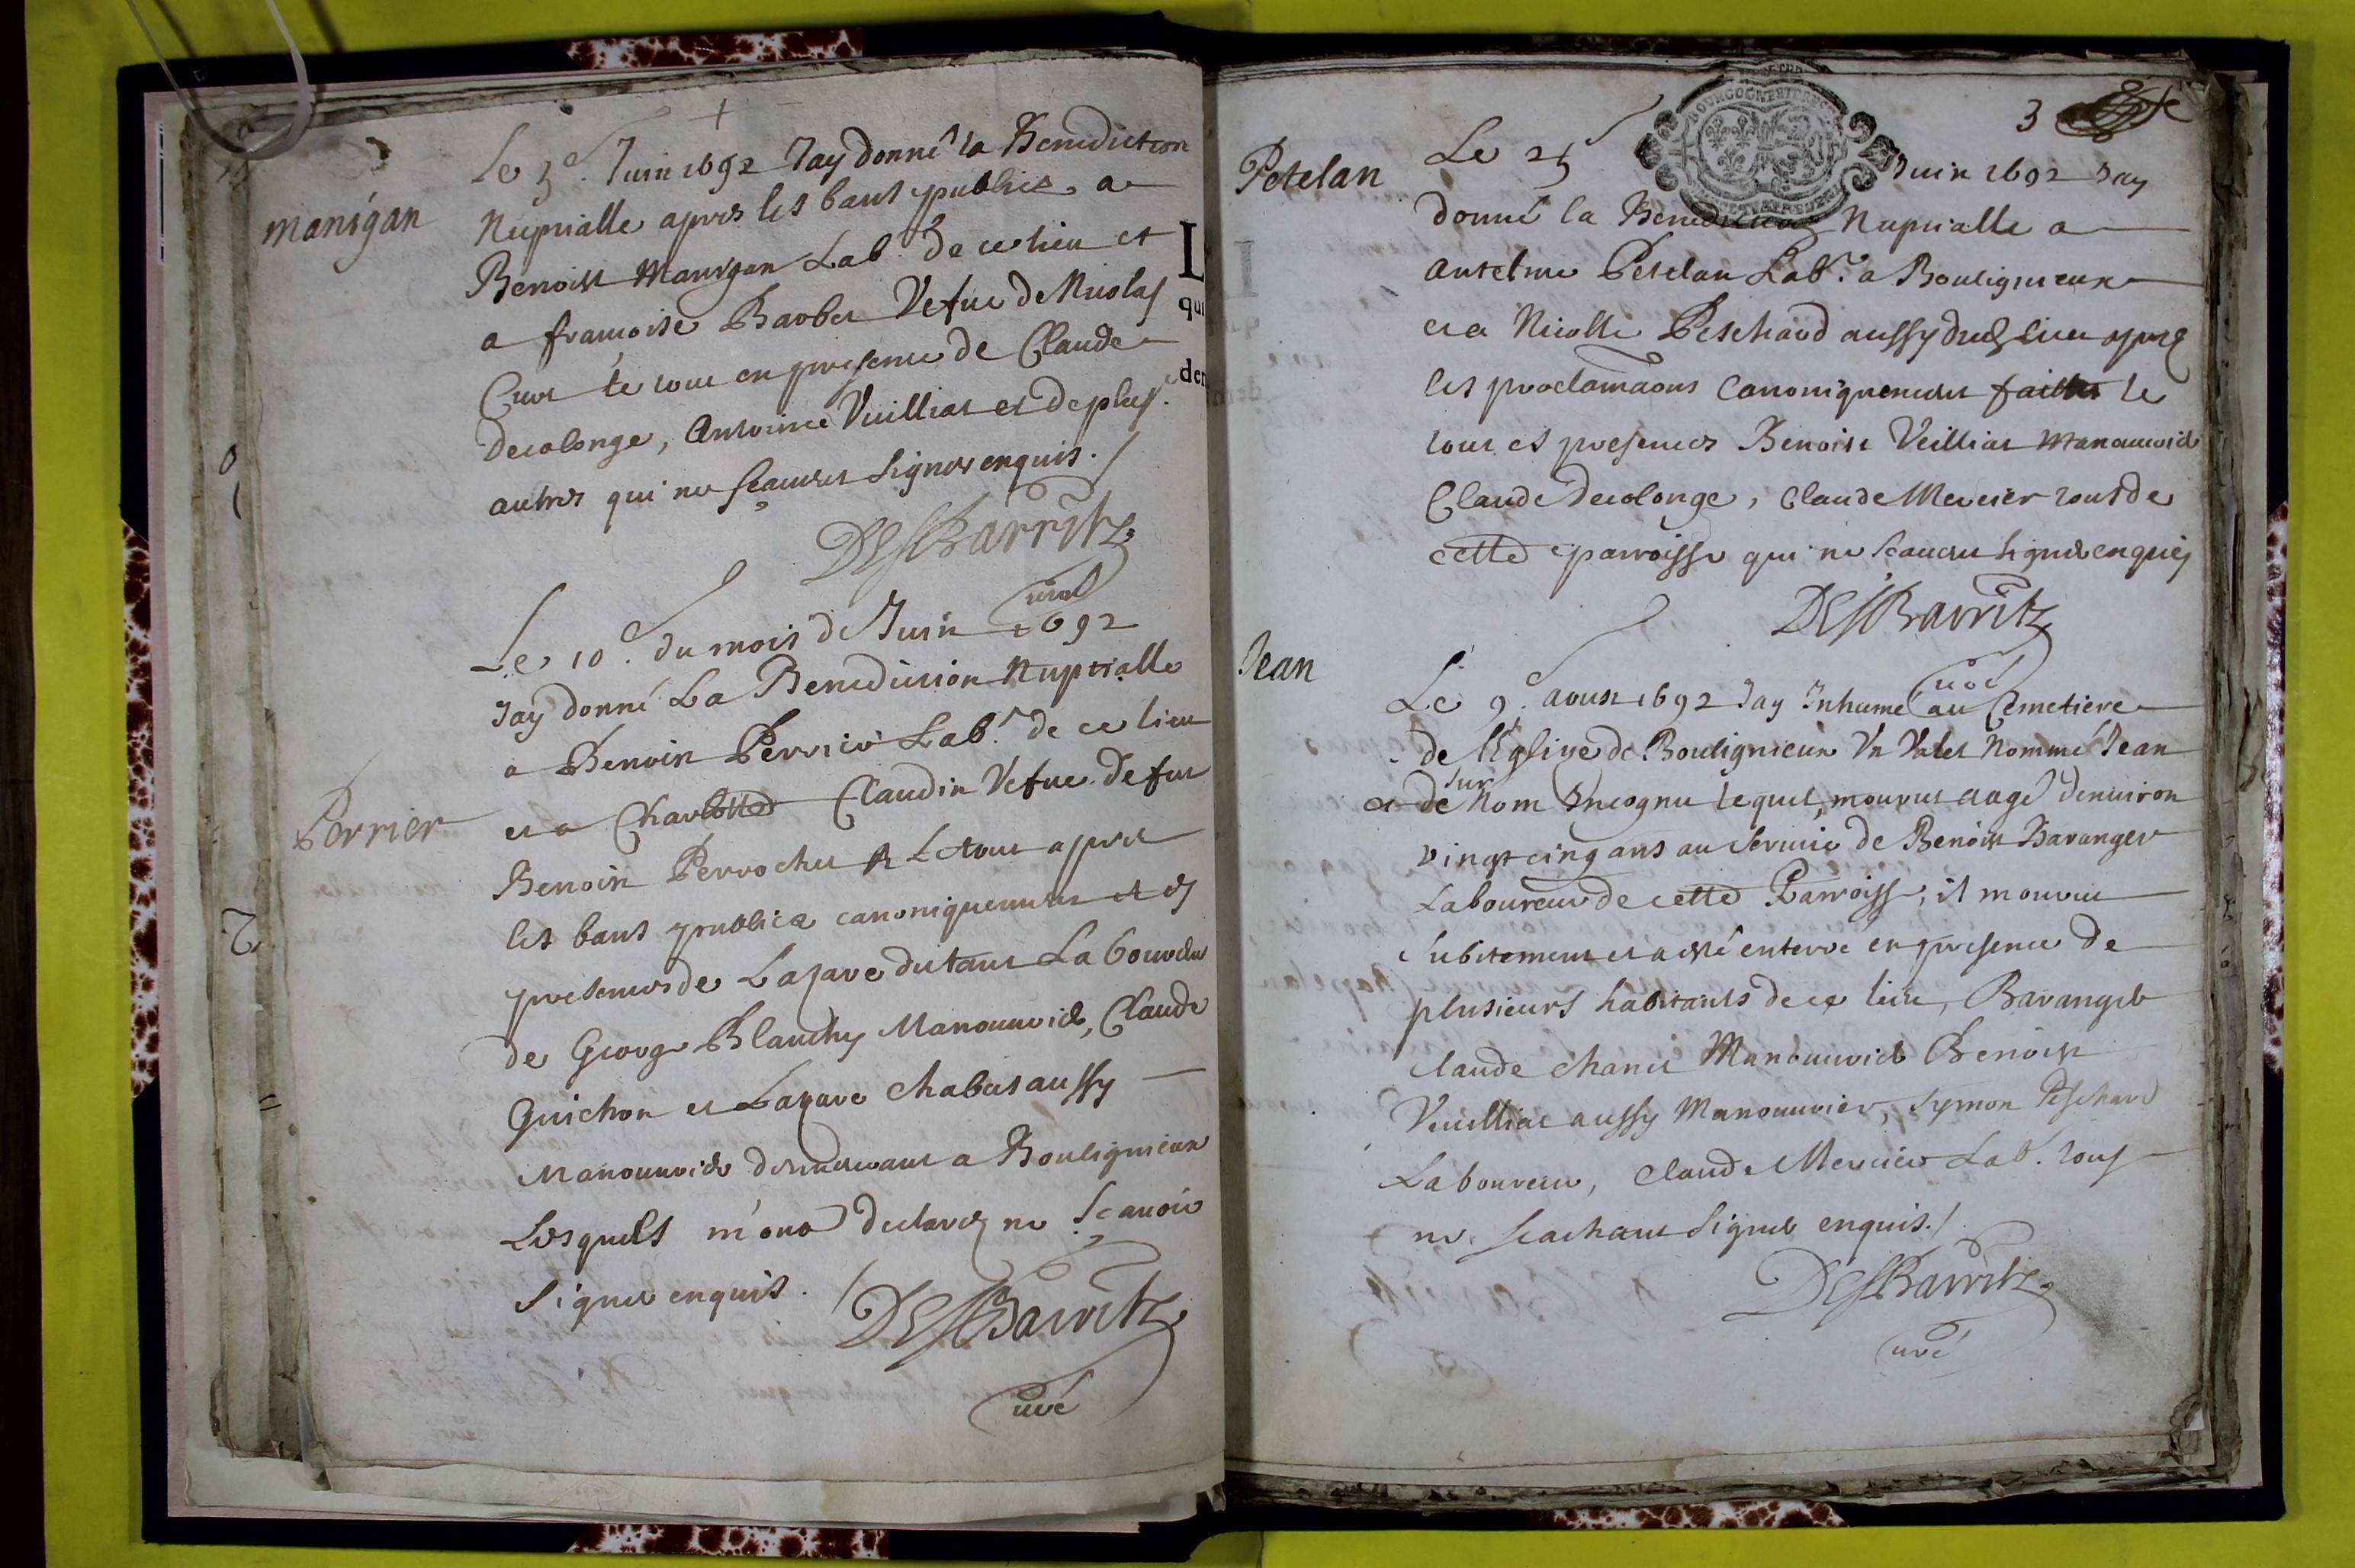 manigan
Le 3e. Juin 1692 Jay donné la Benediction
Nuptialle apres les bans publiez a
Benoist Manigan Lab.r de ce lieu et
a francoise Barbet Vefue de Nicolas
Curt le tout en presence de Claude
decolonge, Antoine Vuilliat et de plus.rs
autres qui ne scauent signer enquis./
DesBarritz
curé
Le 10e. du mois de Juin 1692
Jay donné La Benediction Nuptialle
a Benoist Perrier Lab.r de ce lieu
Perrier
et a Charlotte Claudin Vefue de fut
Benoist Perrochet Le tout apres
les bans publiez canoniquement et es
presences de Lazare dutant Laboureur
de George Blanchy Manouurier, Claude
Guichon et Lazare Chabat aussy
Manouurier demeurant a Bouligneux
Lesquels m'ont declarez ne scauoir
signer enquis. /
DesBarritz
curé
L
qui
der
3
Petelan
Le 25 Juin 1692 Jay
donné la Benediction Nuptialle a
antelme Petelan Lab.r a Bouligneux
et a Nicolle Peschard aussy dud lieu apres
les proclamaons Canoniquement faittes le
tout es presences Benoist Veilliat Manouurier
Claude decolonge, Claude Mercier tous de
cette parroisse qui ne scauent signer enquis
DesBarritz
curé
Jean
Le 9e. aoust 1692 Jay Inhumé au Cemetiere
de l'Eglise de Bouligneux Un Valet Nommé Jean
sur
de Nom Incognu lequel mourut aagé denuiron
vingt cinq ans au seruice de Benoist Baranger
Laboureur de cette Parroisse, il mourut
subitement et a esté enterré en presence de
plusieurs habitants de ce lieu, Baranger
Claude Chanel Manouurier Benoist
Veuilliat aussy Manouurier, Symon Peschard
Laboureur, Claude Mercier Lab.r tous
ne scachant signer enquis./
DesBarritz
curé